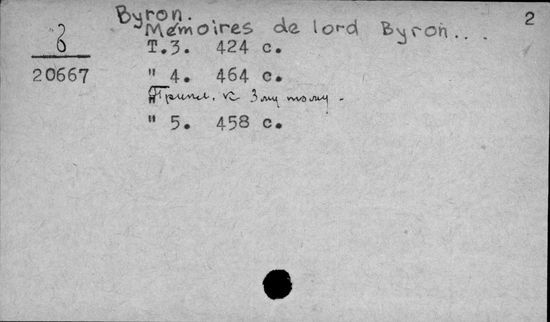 2
Byron.
Mémoires de lord Byron...
20667
T.3. 424 c.
" 4. 464 c.
Припл. к 3му тому.
" 5. 458 c.